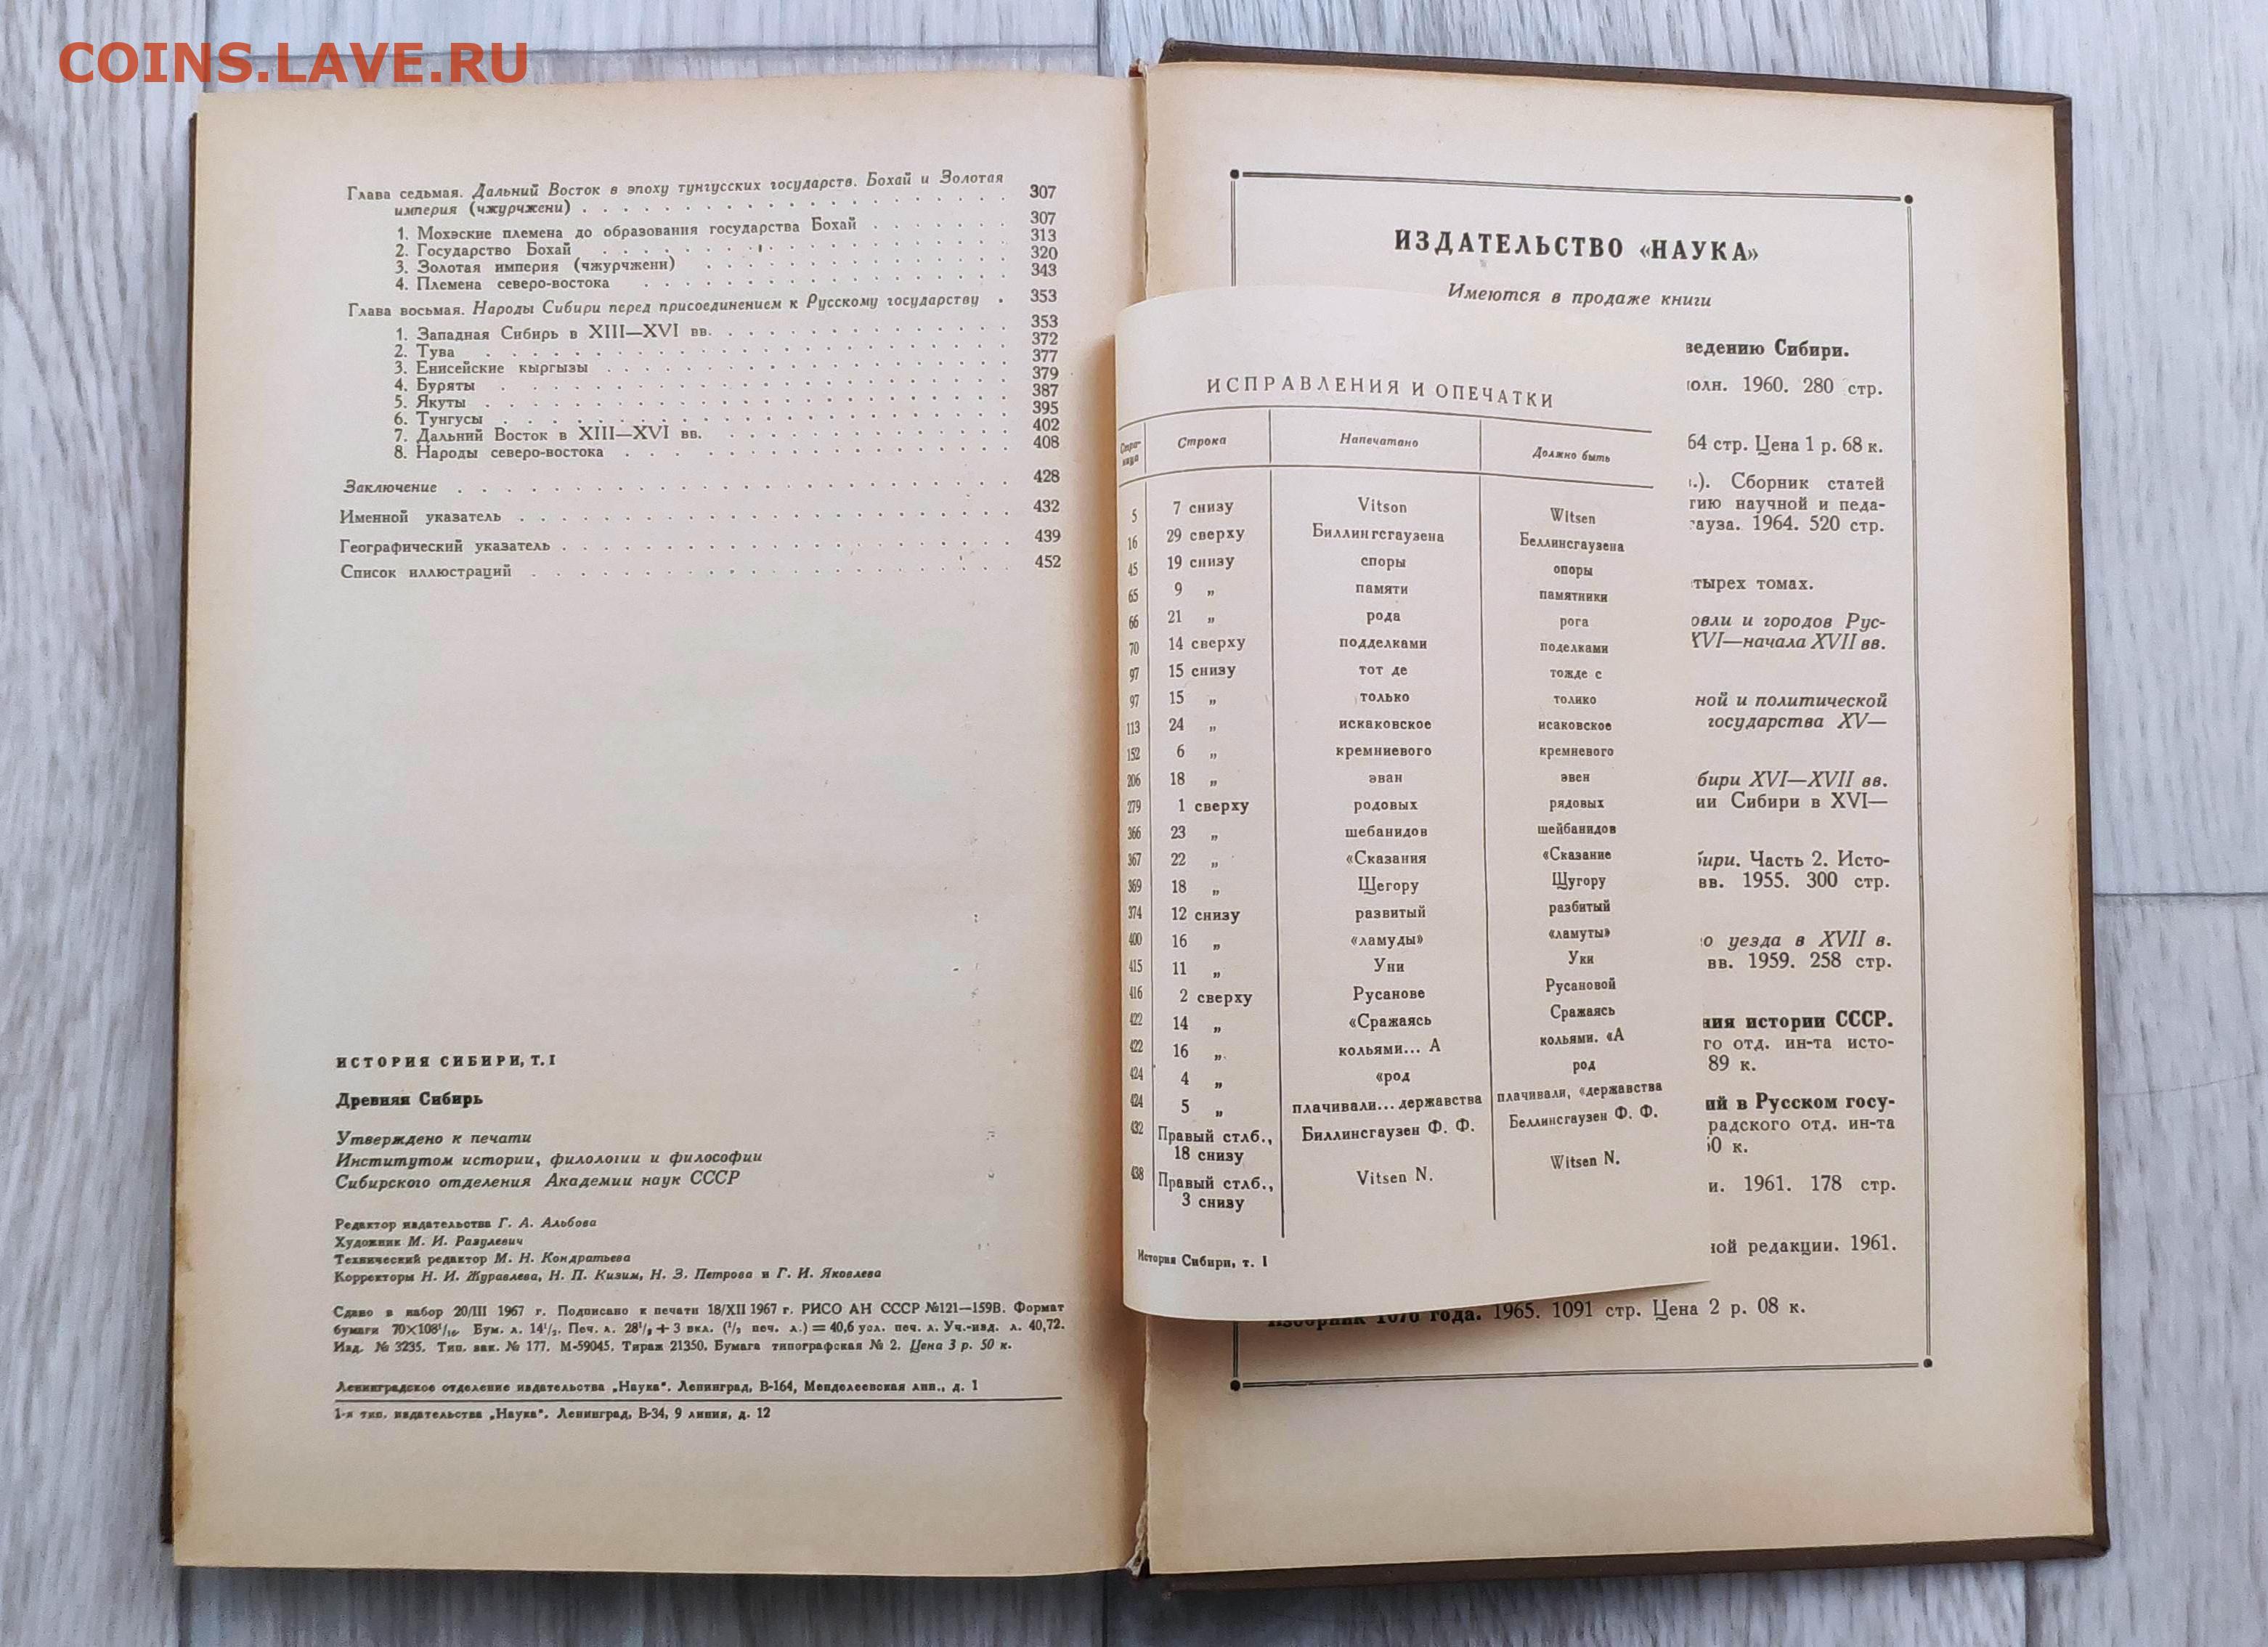 COINS.LAVE.RU
Глава седьмая. Дальний Восток в эпоху тунгусских государств. Бохай и Золотая
империя (чжурчжени) . . . . 307
1. Мохэские племена до образования государства Бохай . . . . 307
2. Государство Бохай . . . . 313
3. Золотая империя (чжурчжени) . . . . 320
4. Племена северо-востока . . . . 343
Глава восьмая. Народы Сибири перед присоединением к Русскому государству . 353
1. Западная Сибирь в XIII—XVI вв. . . . . 353
2. Тува . . . . 372
3. Енисейские кыргызы . . . . 377
4. Буряты . . . . 379
5. Якуты . . . . 387
6. Тунгусы . . . . 395
7. Дальний Восток в XIII—XVI вв. . . . . 402
8. Народы северо-востока . . . . 408
Заключение . . . . 428
Именной указатель . . . . 432
Географический указатель . . . . 439
Список иллюстраций . . . . 452
ИСТОРИЯ СИБИРИ, Т. I
Древняя Сибирь
Утверждено к печати
Институтом истории, филологии и философии
Сибирского отделения Академии наук СССР
Редактор издательства Г. А. Альбова
Художник М. И. Разулевич
Технический редактор М. Н. Кондратьева
Корректоры Н. И. Журавлева, Н. П. Кизим, Н. З. Петрова и Г. И. Яковлева
Сдано в набор 20/III 1967 г. Подписано к печати 18/XII 1967 г. РИСО АН СССР №121—159В. Формат
бумаги 70×108¹/₁₆. Бум. л. 14¹/₂. Печ. л. 28¹/₂+3 вкл. (¹/₂ печ. л.)=40,6 усл. печ. л. Уч.-изд. л. 40,72.
Изд. № 3235. Тип. зак. № 177. М-59045. Тираж 21350. Бумага типографская № 2. Цена 3 р. 50 к.
Ленинградское отделение издательства „Наука". Ленинград, В-164, Менделеевская лин., д. 1
1-я тип. издательства „Наука". Ленинград, В-34, 9 линия, д. 12
ИЗДАТЕЛЬСТВО «НАУКА»
Имеются в продаже книги
ИСПРАВЛЕНИЯ И ОПЕЧАТКИ
Страница Строка Напечатано Должно быть
5 7 снизу Vitson Witsen
16 29 сверху Биллингсгаузена Беллинсгаузена
45 19 снизу споры опоры
65 9 „ памяти памятники
66 21 „ рода рога
70 14 сверху подделками поделками
97 15 снизу тот де тожде с
97 15 „ только толико
113 24 „ искаковское исаковское
152 6 „ кремниевого кремневого
206 18 „ эван эвен
279 1 сверху родовых рядовых
366 23 „ шебанидов шейбанидов
367 22 „ «Сказания «Сказание
369 18 „ Щегору Щугору
374 12 снизу развитый разбитый
400 16 „ «ламуды» «ламуты»
415 11 „ Уни Уки
416 2 сверху Русанове Русановой
422 14 „ «Сражаясь Сражаясь
422 16 „ кольями... А кольями. «А
424 4 „ «род род
424 5 „ плачивали... державства плачивали, «державства
432 Правый стлб., Биллинсгаузен Ф. Ф. Беллинсгаузен Ф. Ф.
18 снизу
438 Правый стлб., Vitsen N. Witsen N.
3 снизу
История Сибири, т. I
ведению Сибири.
олн. 1960. 280 стр.
64 стр. Цена 1 р. 68 к.
.). Сборник статей
гию научной и педа-
гауза. 1964. 520 стр.
тырех томах.
овли и городов Рус-
XVI—начала XVII вв.
ной и политической
государства XV—
бири XVI—XVII вв.
ии Сибири в XVI—
бири. Часть 2. Исто-
вв. 1955. 300 стр.
о уезда в XVII в.
вв. 1959. 258 стр.
ния истории СССР.
го отд. ин-та исто-
89 к.
ий в Русском госу-
радского отд. ин-та
0 к.
и. 1961. 178 стр.
ной редакции. 1961.
Изборник 1076 года. 1965. 1091 стр. Цена 2 р. 08 к.